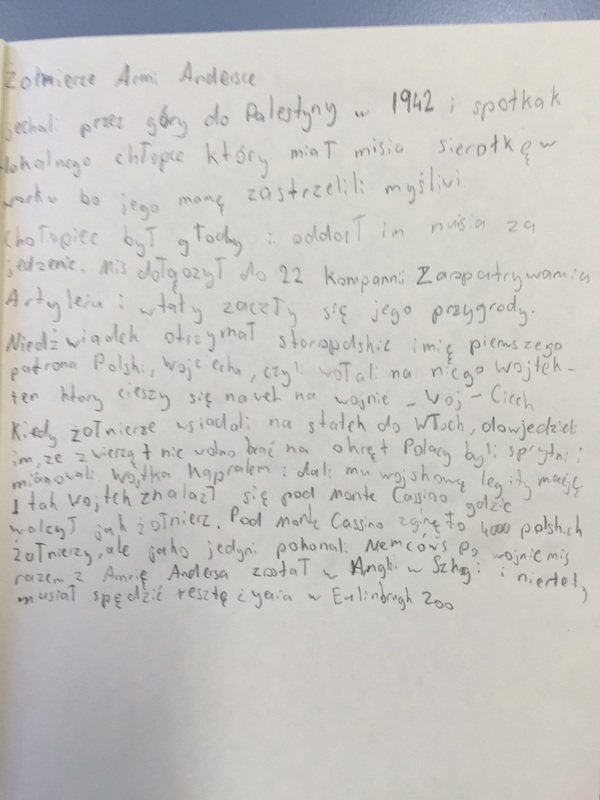 Żołnierze Armi Andersce
jechali przez góry do Palestyny w 1942 i spotkak
lokalnego chłopce który miał misia sierotkę w
worku bo jego mamę zastrzelili myśliwi
Chołopiec był głodny i oddał im misia za
jedzenie. Mis dołączył do 22 Kompannii Zaopatrywania
Artylerii i wtaty zaczły się jego przygrody.
Niedźwiadek otrzymał staropolskie imię pierwszego
patrona Polski, Wojciecha, czyli wołali na niego Wojtek -
ten ktory cieszy się nawet na wojnie - Woj - Ciech
Kiedy żołnierze wsiadali na statek do Włoch, dowiedzieli
im, ze zwierząt nie wolno brać na okręt Polacy byli sprytni i
mianowali Wojtka kapralem i dali mu wojskową legitymację
I tak Wojtek znalazł się pod Monte Cassino gdzie
walczył jak żołnierz. Pod Monte Cassino zginęło 4000 polskich
żołnierzy, ale jako jedyni pokonali Niemców Po wojnie mis
razem z Amrią Andersa został w Angli w Szkocji i niertety
musiał spędzić resztę życia w Edinbrugh Zoo